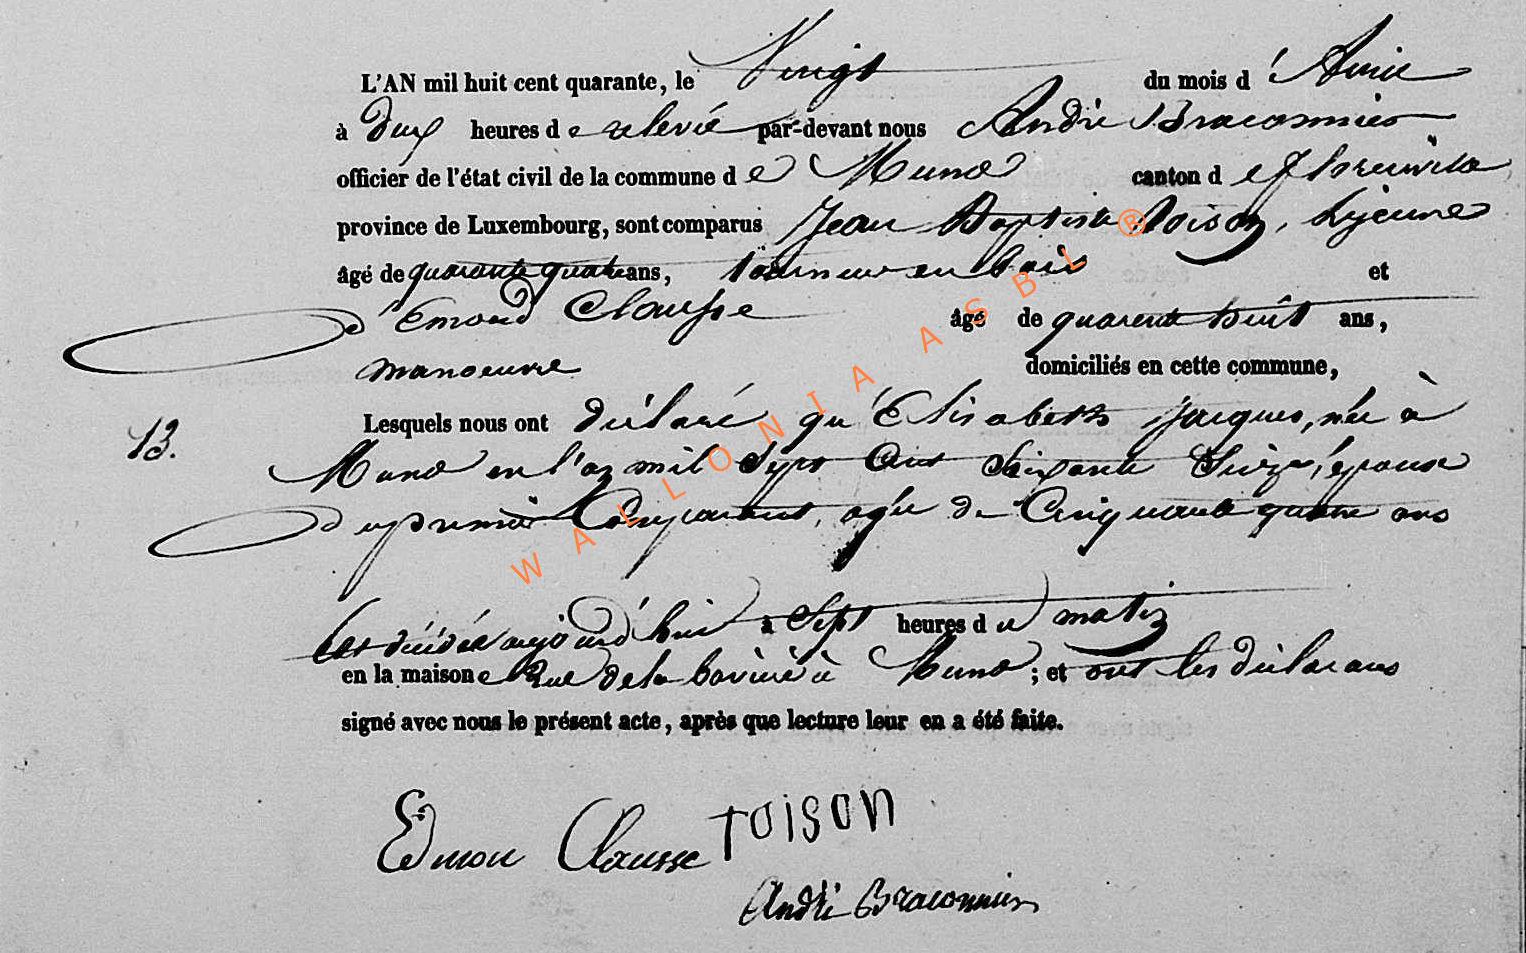 L'AN mil huit cent quarante, le Vingt du mois d'Avril
à deux heures de relevée par-devant nous André Braconnier
officier de l'état civil de la commune de Muno canton de florenville
province de Luxembourg, sont comparus Jean Baptiste Toison, lejeune
âgé de quarante quatre ans, tourneur en bois et
d'Emond Clausse âgé de quarente huit ans,
manoeuvre domiciliés en cette commune,
13. Lesquels nous ont déclaré qu'Elisabeth Jacques, née à
Muno en l'an mil Sept Cent Seixante Seize, épouse
du premier Comparant, agée de Cinquante quatre ans
Est décédée aujourd'hui à Sept heures du matin
en la maison Rue de la à Muno; et ont les déclarans
signé avec nous le présent acte, après que lecture leur en a été faite.
Edmon Clausse TOISON
André Braconnier
WALLONIA ASBL ®